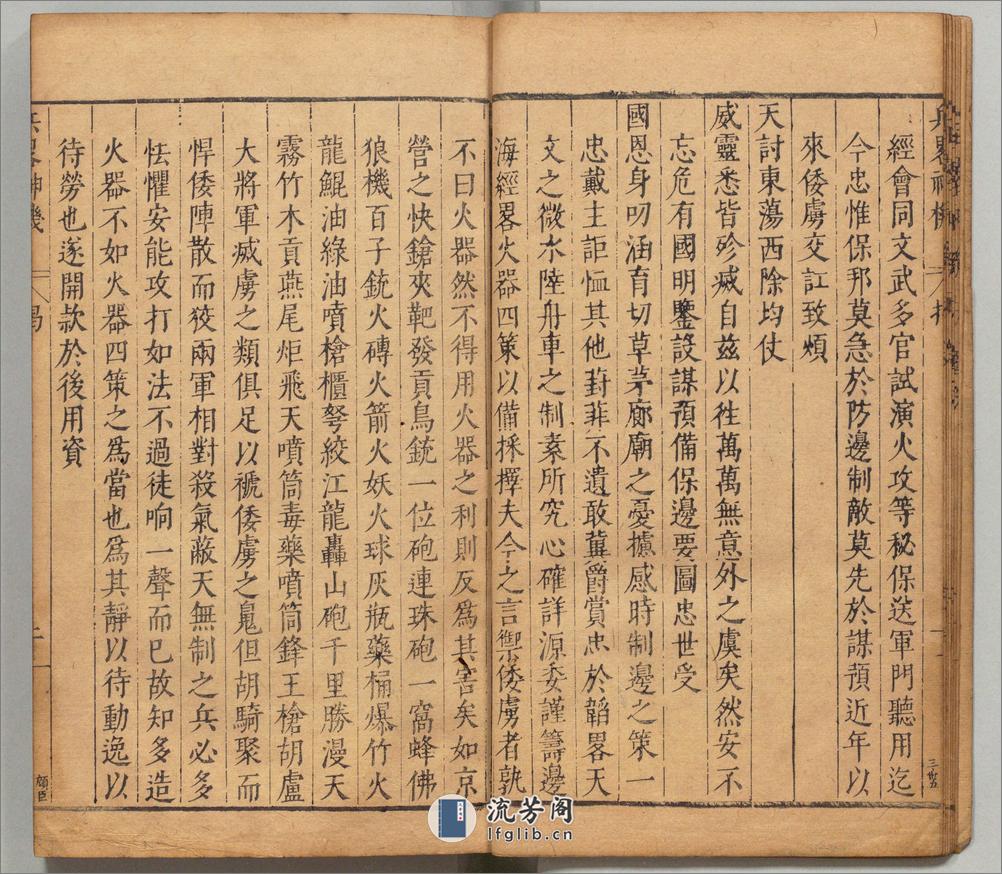 經會同文武多官試演火攻等秘保送軍門聽用迄
今忠惟保邦莫急於防邊制敵莫先於謀預近年以
來倭虜交訌致煩
天討東蕩西除均仗
威靈悉皆殄滅自玆以徃萬萬無意外之虞矣然安不
忘危有國明鑒設謀預備保邊要圖忠世受
國恩身叨涵育切草茅廊廟之憂攄感時制邊之策一
忠戴主詎恤其他葑菲不遺敢冀爵賞忠於韜畧天
文之微水陸舟車之制素所究心確詳源委謹籌邊
海經畧火器四策以備採擇夫今之言禦倭虜者孰
不曰火器然不得用火器之利則反為其害矣如京
營之快鎗夾靶發貢鳥銃一位砲連珠砲一窩蜂佛
狼機百子銃火磚火箭火妖火球灰瓶藥桶爆竹火
龍鯤油綠油噴槍櫃弩絞江龍轟山砲千里勝漫天
霧竹木貢燕尾炬飛天噴筒毒藥噴筒鋒王槍胡盧
大將軍滅虜之類俱足以褫倭虜之鬼但胡騎聚而
悍倭陣散而狡兩軍相對殺氣蔽天無制之兵必多
怯懼安能攻打如法不過徒响一聲而已故知多造
火器不如火器四策之為當也為其靜以待動逸以
待勞也遂開款於後用資
兵畧神機
二
顧臣
三廿五
流芳阁
lfglib.cn